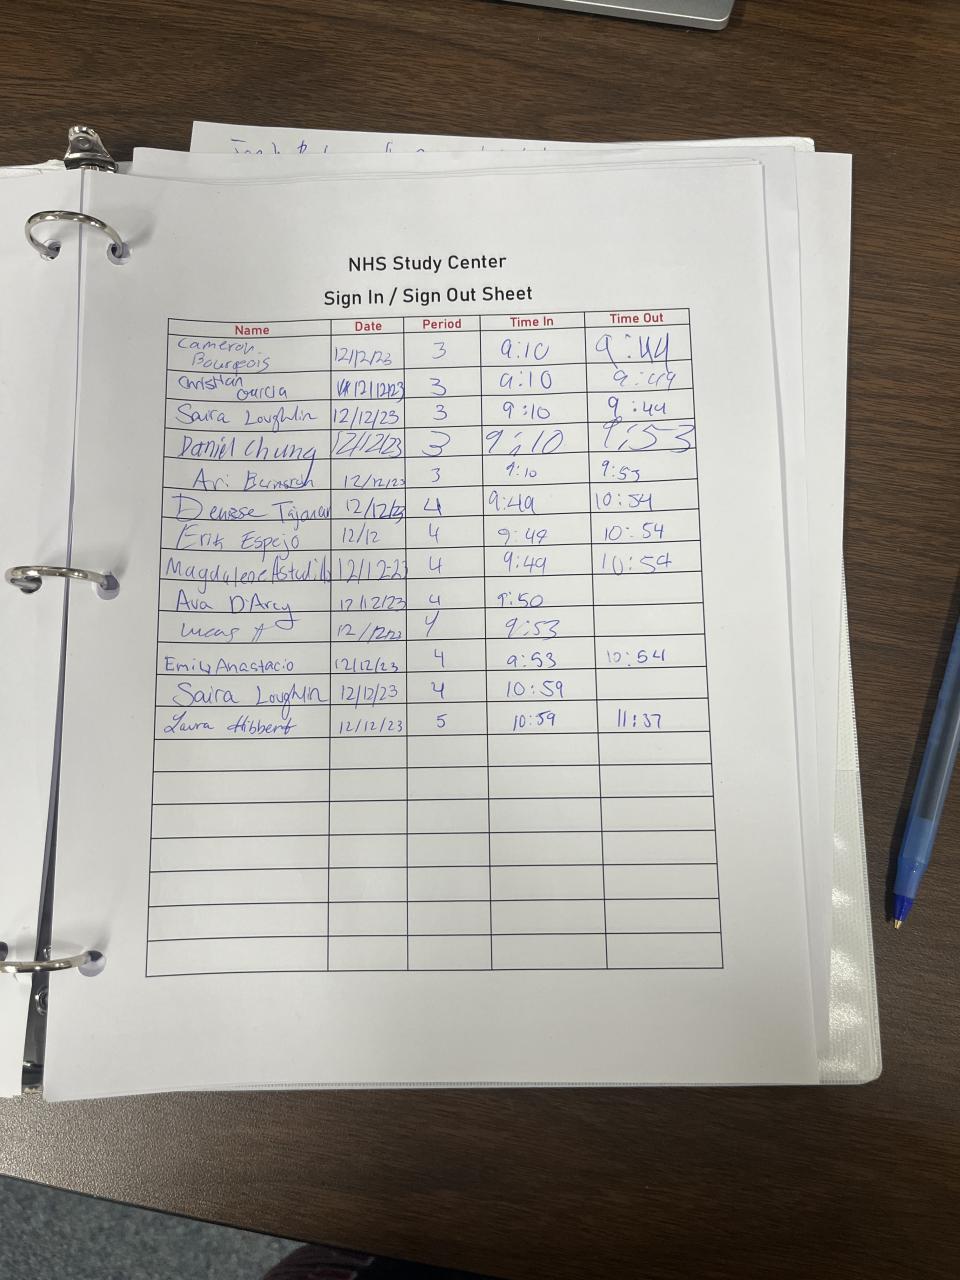 NHS Study Center
Sign In / Sign Out Sheet
Name Date Period Time In Time Out
Cameron
Bourgeois 12/12/23 3 9:10 9:44
Christian
Garcia 12/12/23 3 9:10 9:49
Saira Loughlin 12/12/23 3 9:10 9:44
Daniel Chung 12/12/23 3 9:10 9:53
Ari 12/12/23 3 9:10 9:53
Denisse 12/12/23 4 9:49 10:54
Erik Espejo 12/12 4 9:49 10:54
Magdalene Astudillo 12/12-23 4 9:49 10:54
Ava D'Arcy 12/12/23 4 9:50
Lucas A 12/12/23 4 9:53
Emily Anastacio 12/12/23 4 9:53 10:54
Saira Loughlin 12/12/23 4 10:59
Laura Hibbert 12/12/23 5 10:59 11:37